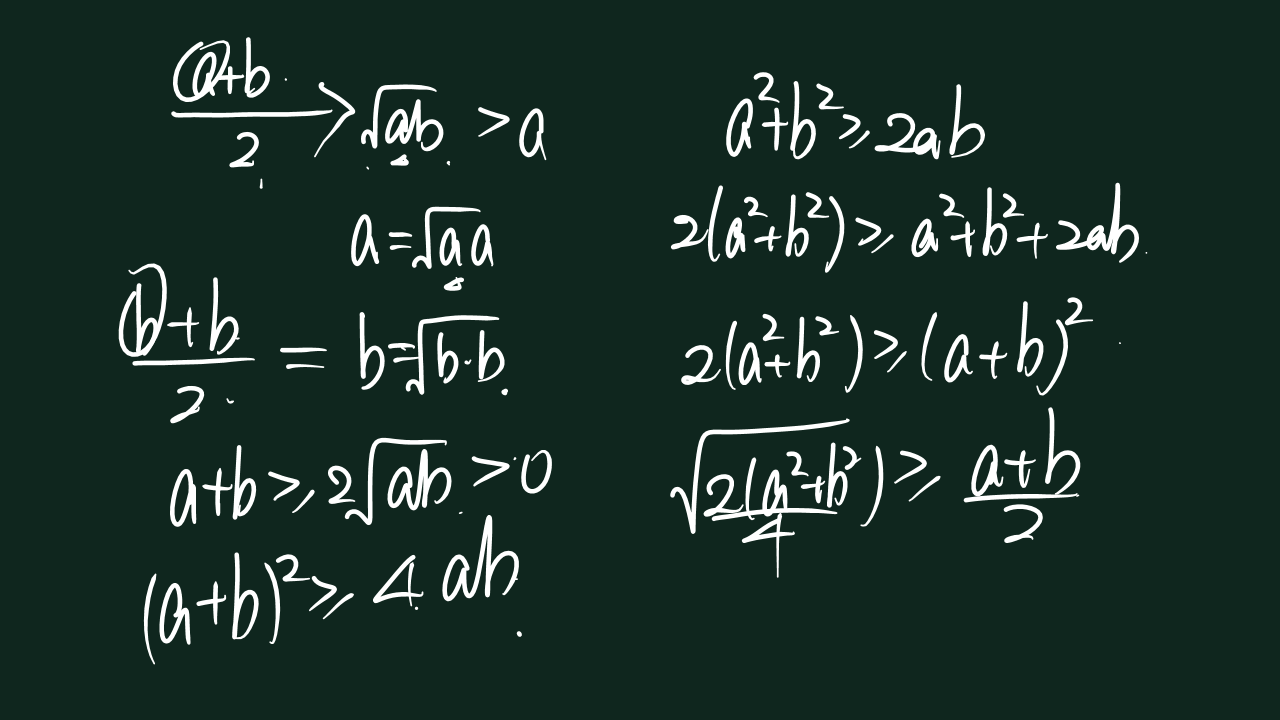 (a+b)/2 > √ab > a
a = √aa
(b+b)/2 = b = √b·b
a+b ≥ 2√ab > 0
(a+b)² ≥ 4ab
a²+b² ≥ 2ab
2(a²+b²) ≥ a²+b²+2ab
2(a²+b²) ≥ (a+b)²
√(2(a²+b²)/4) ≥ (a+b)/2